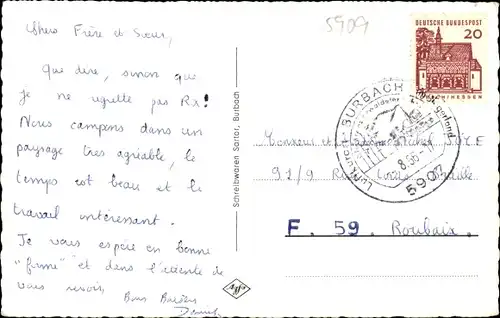 5909
Chers Frère et Soeur,
Que dire, sinon que
je ne regrette pas Rx !
Nous campons dans un
paysage très agréable, le
temps est beau et le
travail intéressant.
Je vous espère en bonne
"forme" et dans l'attente de
vous revoir,
Bons Baisers
Schreibwaren Sartor, Burbach
DEUTSCHE BUNDESPOST
20
LORSCH/HESSEN
BURBACH
Luftkurort
Siegerland
8.66
5907
Monsieur et Madame
92/9 Rue Louis Braille
F. 59. Roubaix.